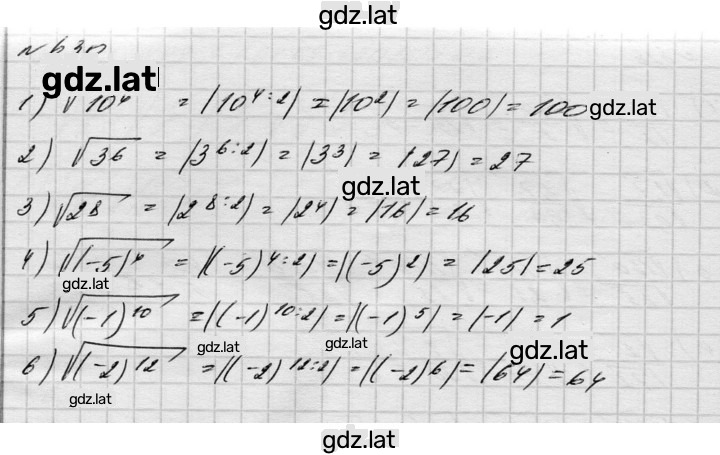 gdz.lat
gdz.lat
1) √10⁴ = |10^(4:2)| = |10²| = |100| = 100 gdz.lat
2) √3⁶ = |3^(6:2)| = |3³| = |27| = 27
gdz.lat
3) √2⁸ = |2^(8:2)| = |2⁴| = |16| = 16
4) √(-5)⁴ = |(-5)^(4:2)| = |(-5)²| = |25| = 25
gdz.lat
5) √(-1)¹⁰ = |(-1)^(10:2)| = |(-1)⁵| = |-1| = 1
gdz.lat gdz.lat gdz.lat
6) √(-2)¹² = |(-2)^(12:2)| = |(-2)⁶| = |64| = 64
gdz.lat
gdz.lat